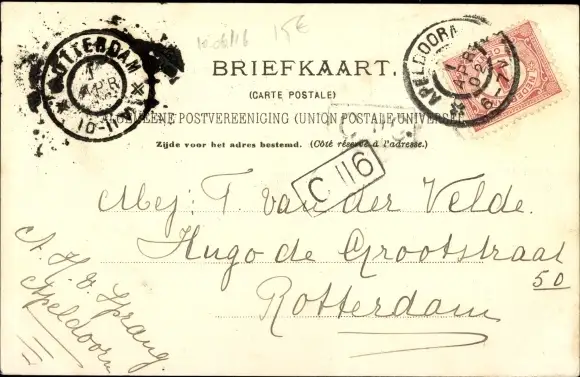 15€
ROTTERDAM
1
APR
10-11
BRIEFKAART.
(CARTE POSTALE)
ALGEMEENE POSTVEREENIGING (UNION POSTALE UNIVERSELLE)
Zijde voor het adres bestemd. (Côté réservé à l'adresse.)
APELDOORN
1
APR
02
C 116
Mej: T. van der Velde.
Hugo de Grootstraat
50
Rotterdam
A. H. v. Sprang
Apeldoorn